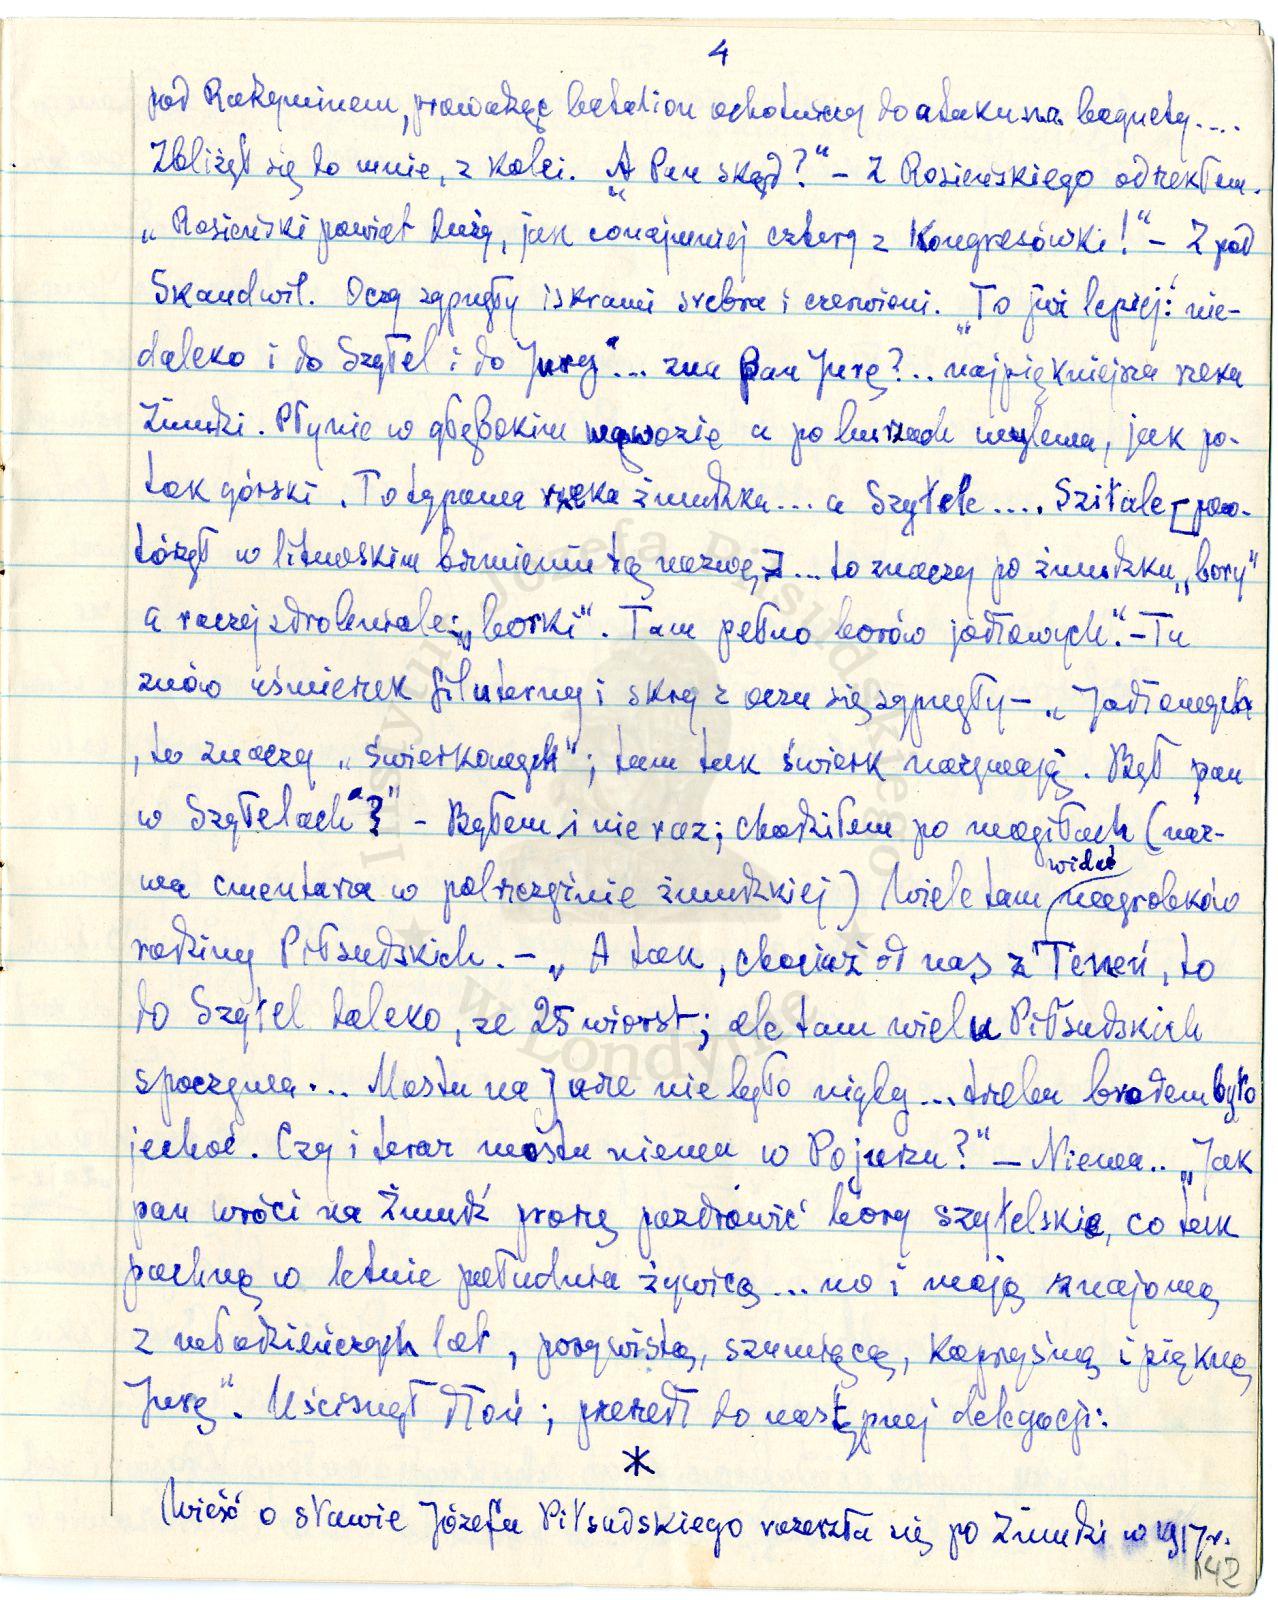 4
pod Radzyminem, prowadząc batalion ochotniczy do ataku na bagnety....
Zbliżył się do mnie, z kolei. „A Pan skąd?“ – Z Rosieńskiego odrzekłem.
„Rosieński powiat duży, jak conajmniej cztery z Kongresówki!“ – Z pod
Skaudwil. Oczy sypnęły iskrami srebra i czerwieni. „To już lepiej: nie-
daleko i do Szyłel i do Jury“... zna Pan Jurę?.. najpiękniejsza rzeka
Żmudzi. Płynie w głębokim wąwozie a po burzach wylewa, jak po-
tok górski. To typowa rzeka żmudzka... a Szyłele .... Sziłale [pow-
tórzył w litewskim brzmieniu tą nazwę]... to znaczy po żmudzku „bory“
a raczej zdrobniale: „borki“. Tam pełno borów jodłowych“. – Tu
znów uśmieszek filuterny i skry z oczu się sypnęły – „Jodłowych
, to znaczy „świerkowych“; tam tak świerk nazywają. Był pan
w Szyłelach“?“ – Byłem i nie raz; chodziłem po mogiłach (naz-
wa cmentarza w polszczyźnie żmudzkiej) Wiele tam widać nagrobków
rodziny Piłsudskich. – „A tak, chociaż od nas z Teneń, to
do Szyłel daleko, ze 25 wiorst; ale tam wielu Piłsudskich
spoczywa... Mostu na Jurze nie było nigdy... trzeba brodem było
jechać. Czy i teraz mostu niema w Pojurzu?“ – Niema.. „Jak
pan wróci na Żmudź proszę pozdrowić bory szyłelskie, co tak
pachną w letnie południa żywicą... no i moją znajomą
z młodzieńczych lat, porywistą, szumiącą, kapryśną i piękną
Jurę“. Uścisnął dłoń; przeszedł do następnej delegacji.
*
Wieść o sławie Józefa Piłsudskiego rozeszła się po Żmudzi w 1917r.
142
Instytut Józefa Piłsudskiego
w Londynie